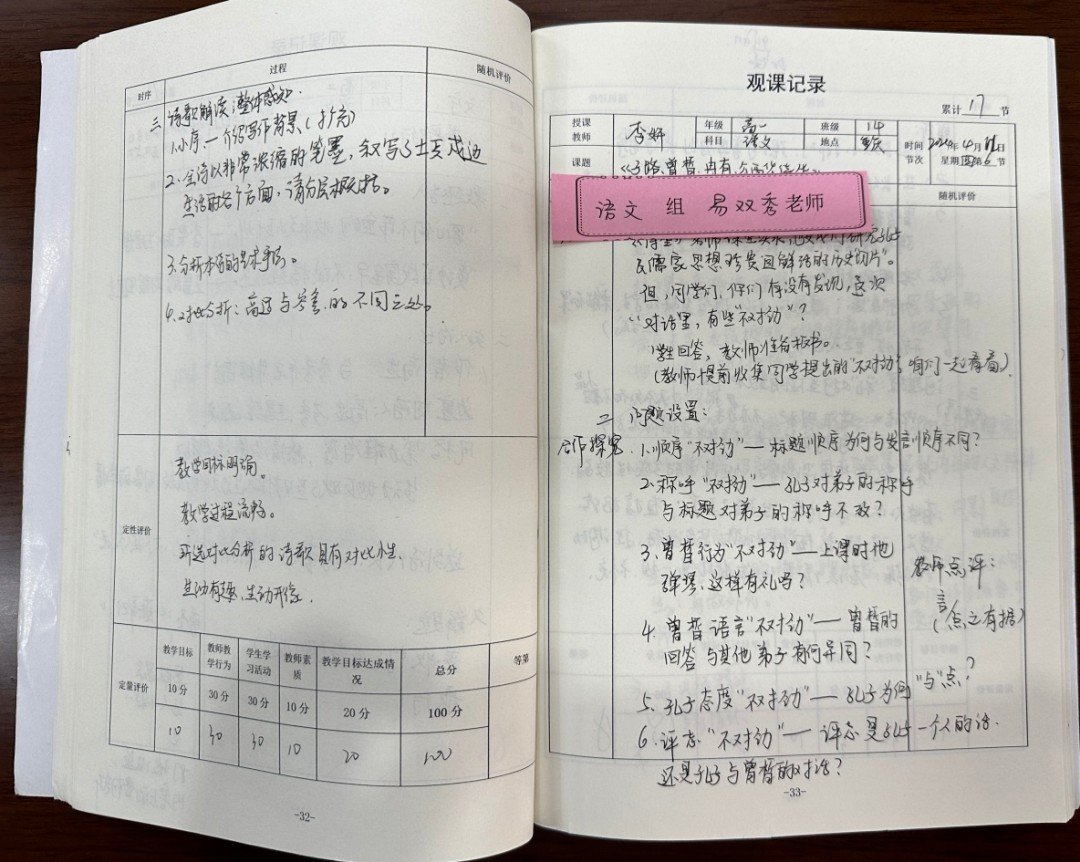 时序
过程
随机评价
三、诗歌解读:整体感知。
1.小序。—介绍写作背景。(扩充)
2.全诗以非常浓缩的笔墨,叙写了士兵戍边
生活的各个方面,请分层概括。
3.分析本诗的艺术手法。
4.对比分析:高适与岑参的不同之处。
定性评价
教学目标明确。
教学过程流畅。
所选对比分析的诗歌具有对比性.
生动有趣,生动形象.
定量评价
教学目标
教师教学行为
学生学习活动
教师素质
教学目标达成情况
总分
等第
10分
30分
30分
10分
20分
100分
10
30
30
10
20
100
-32-
观课记录
累计 17 节
授课教师
李妍
年级
高一
班级
14
科目
语文
地点
时间 2024年4月 日
节次 星期四第6节
课题
《子路、曾皙、冉有、公西华侍坐》
随机评价
语文 组 易双秀老师
民儒家思想珍贵且鲜活的历史“切片”。
但,同学们,你们有没有发现,这次
“对话里,有些“不对劲”?
学生回答,教师准备板书。
(教师提前收集同学提出的“不对劲”,咱们一起看看)
二、问题设置:
1.顺序“不对劲”—标题顺序为何与发言顺序不同?
2.称呼“不对劲”—孔子对弟子的称呼
与标题对弟子的称呼不一致?
3.曾皙行为“不对劲”—上课时他
弹琴,这样有礼吗?
教师点评:
言
(点之有据)
4.曾皙语言“不对劲”—曾皙的
回答与其他弟子有何异同?
5.孔子态度“不对劲”—孔子为何“与”点?
6.评志“不对劲”—评志是孔子一个人的话.
还是孔子与曾皙的对话?
-33-